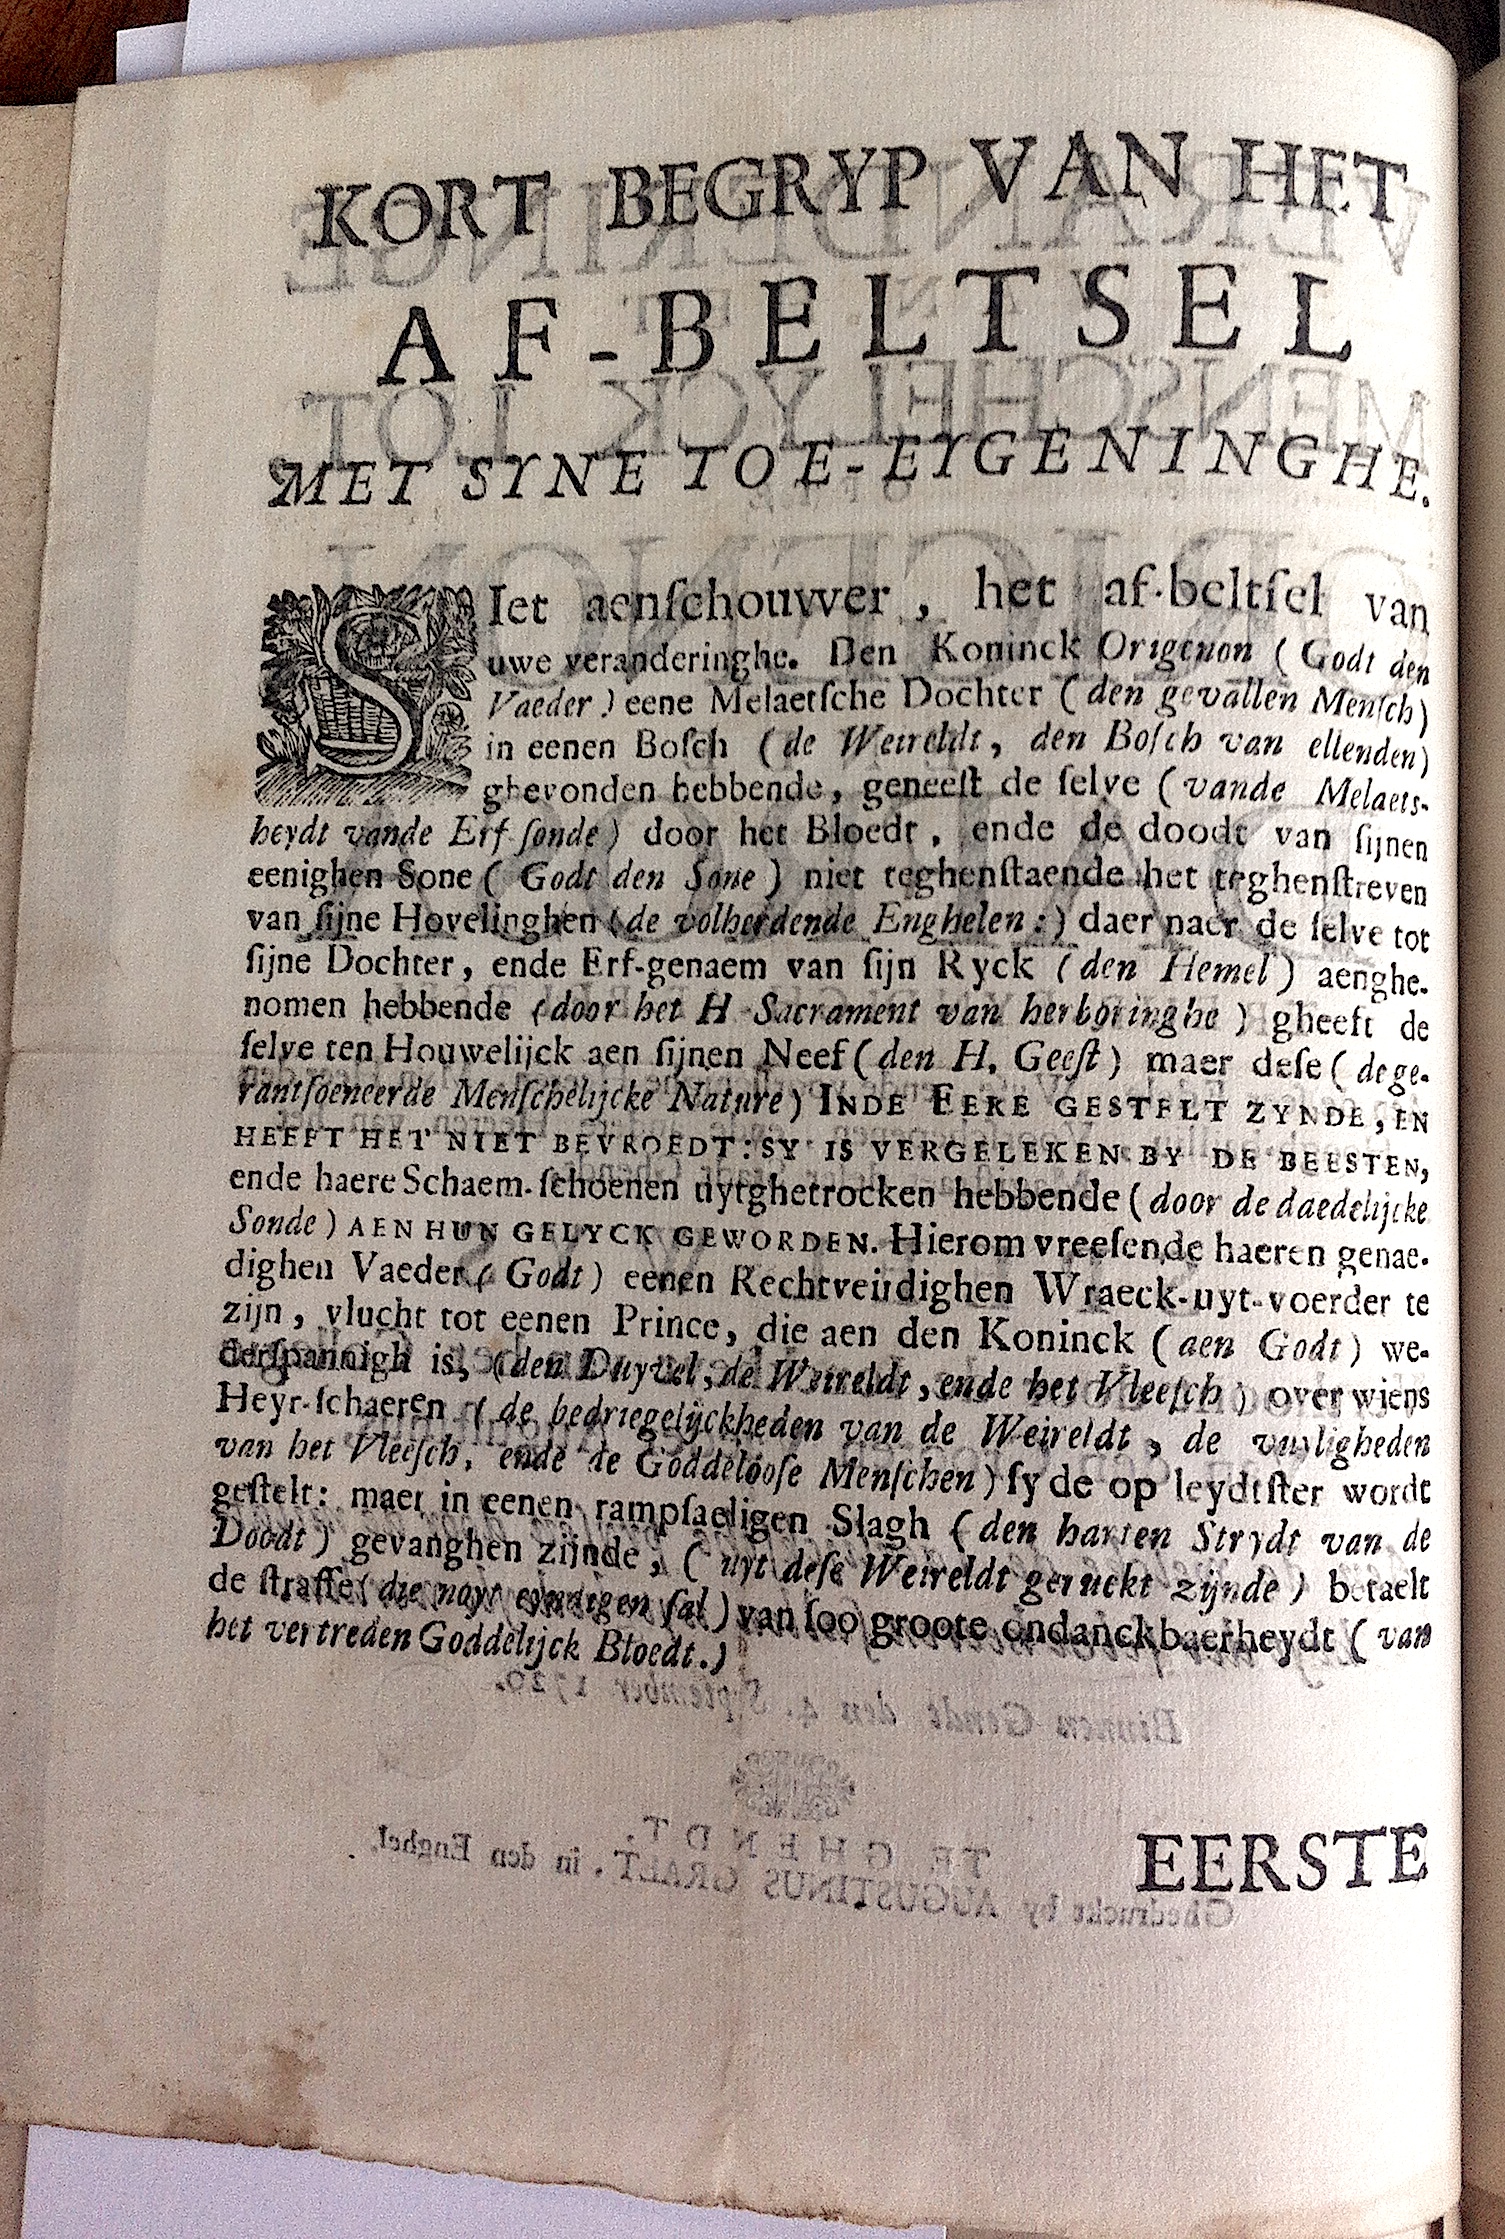 KORT BEGRYP VAN HET
AF-BELTSEL
MET SYNE TOE-EYGENINGHE.
SIet aenſchouwer, het af-beltſel van
uwe veranderinghe. Den Koninck Origenon (Godt den
Vaeder) eene Melaetſche Dochter (den gevallen Menſch)
in eenen Boſch (de Weireldt, den Boſch van ellenden)
ghevonden hebbende, geneeſt de ſelve (vande Melaets-
heydt vande Erf-ſonde) door het Bloedt, ende de doodt van ſijnen
eenighen Sone (Godt den Sone) niet teghenſtaende het teghenſtreven
van ſijne Hovelinghen (de volherdende Enghelen:) daer naer de ſelve tot
ſijne Dochter, ende Erf-genaem van ſijn Ryck (den Hemel) aenghe-
nomen hebbende (door het H. Sacrament van herboringhe) gheeft de
ſelve ten Houwelijck aen ſijnen Neef (den H. Geeſt) maer deſe (de ge-
rantſoeneerde Menſchelijcke Nature) INDE EERE GESTELT ZYNDE, EN
HEEFT HET NIET BEVROEDT: SY IS VERGELEKEN BY DE BEESTEN,
ende haere Schaem-ſchoenen uytghetrocken hebbende (door de daedelijcke
Sonde) AEN HUN GELYCK GEWORDEN. Hierom vreeſende haeren genae-
dighen Vaeder (Godt) eenen Rechtveirdighen Wraeck-uyt-voerder te
zijn, vlucht tot eenen Prince, die aen den Koninck (aen Godt) we-
derſpannigh is, (den Duyvel, de Weireldt, ende het Vleeſch) over wiens
Heyr-ſchaeren (de bedriegelijckheden van de Weireldt, de vuyligheden
van het Vleeſch, ende de Goddelooſe Menſchen) ſy de op leydtſter wordt
geſtelt: maer in eenen rampſaeligen Slagh (den harten Strydt van de
Doodt) gevanghen zijnde, (uyt deſe Weireldt geruckt zijnde) betaelt
de ſtraffe (die noyt eyndigen ſal) van ſoo groote ondanckbaerheydt (van
het vertreden Goddelijck Bloedt.)
EERSTE